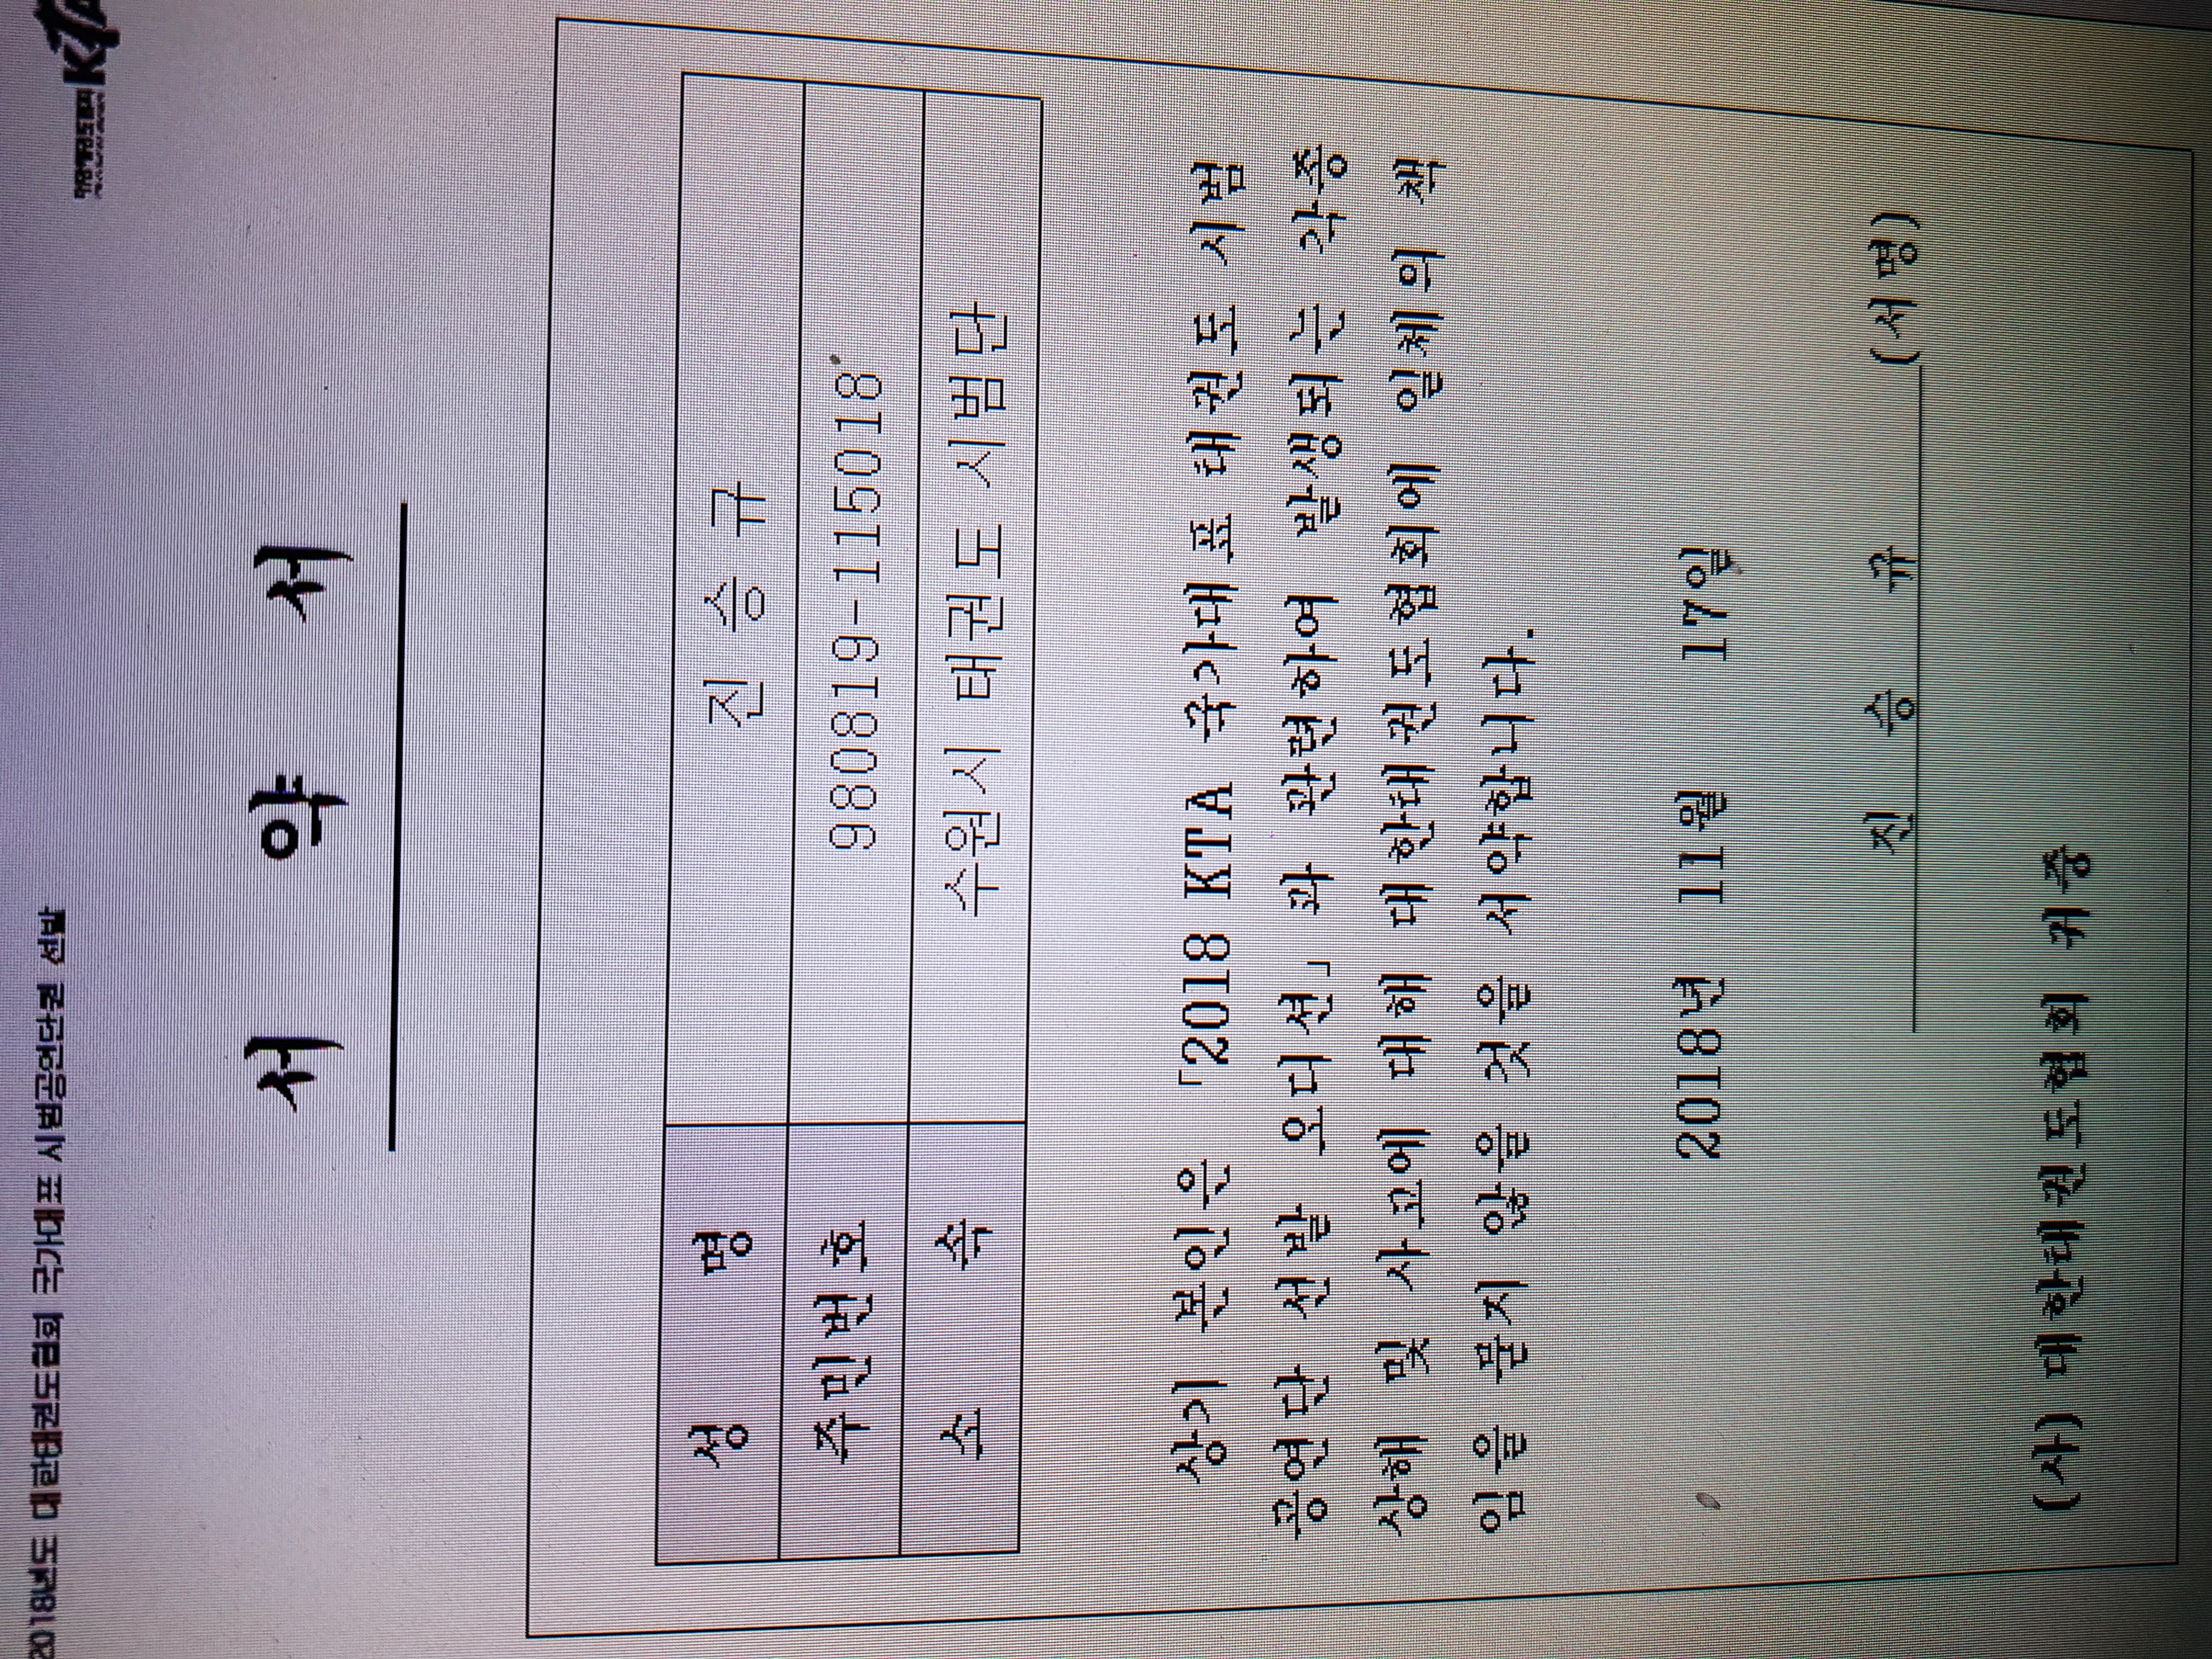 2018년도 대한태권도협회 국가대표 시범공연단원 선발
서 약 서
성 명 진 승 규
주민번호 980819-115018
소 속 수원시 태권도 시범단
상기 본인은 「2018 KTA 국가대표 태권도 시범
공연단 선발 오디션」과 관련하여 발생되는 각종
상해 및 사고에 대해 대한태권도협회에 일체의 책
임을 묻지 않을 것을 서약합니다.
2018년 11월 17일
진 승 규 (서명)
(사)대한태권도협회 귀중